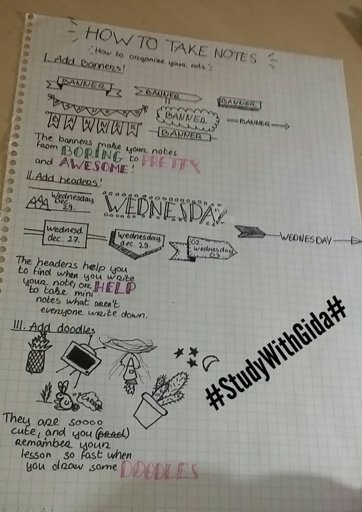 HOW TO TAKE NOTES
How to organise your
I. Add Banners!
BANNER
BANNER
BANNER
BANNER
BANNER
BANNER
The banners make your notes
from BORING to PRETTY
and AWESOME!
II. Add headers!
Wednesday
Dec.
29.
WEDNESDAY
Wednesd.
dec. 27.
Wednesday
dec. 29.
Wednesday
03
WEDNESDAY
The headers help you
to find when you write
your note, or HELP
to take mini
notes what aren't
everyone write down.
III. Add doodles
They are soooo
cute, and you
remember your
lesson so fast when
you draw some DOODLES
#StudyWithGida#